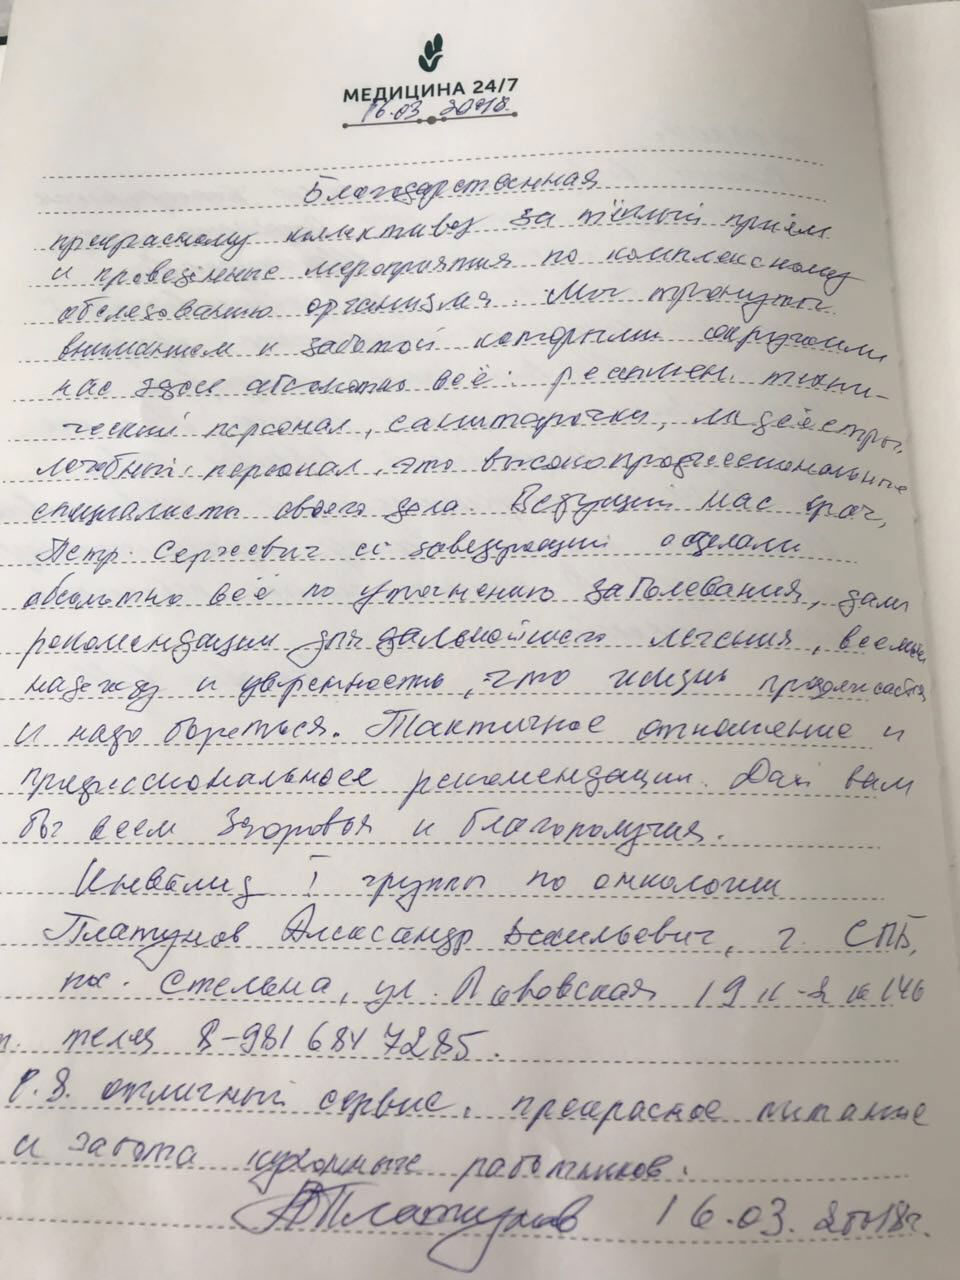 МЕДИЦИНА 24/7
16.03 2018.
Благодарственная
прекрасному колективу за тёплый приём
и проведённые мероприятия по комплексному
обследованию организма. Мы тронуты
вниманием и заботой которыми окружили
нас здесь абсолютно всё: техни-
ческий персонал, санитарочки, медсёстры,
лечебный персонал, это высокопрофессиональные
специалисты своего дела. Ведущий нас врач,
Петр Сергеевич и заведующий отделали
абсолютно всё по уточнению заболевания, дали
рекомендации для дальнейшего лечения,
надежду и уверенность, что жизнь продолжается
и надо бороться. Тактичное отношение и
профессиональное рекомендации. Дай вам
бог всем здоровья и благополучия.
Инвалид I группы по онкологии
Платунов Александр Васильевич, г. СПб,
пос. Стрельна, ул. 19 к-2 кв 146
8-981 684 7285.
P.S. отличный сервис, прекрасное питание
и забота кухонные работников.
Платунов 16.03.2018г.